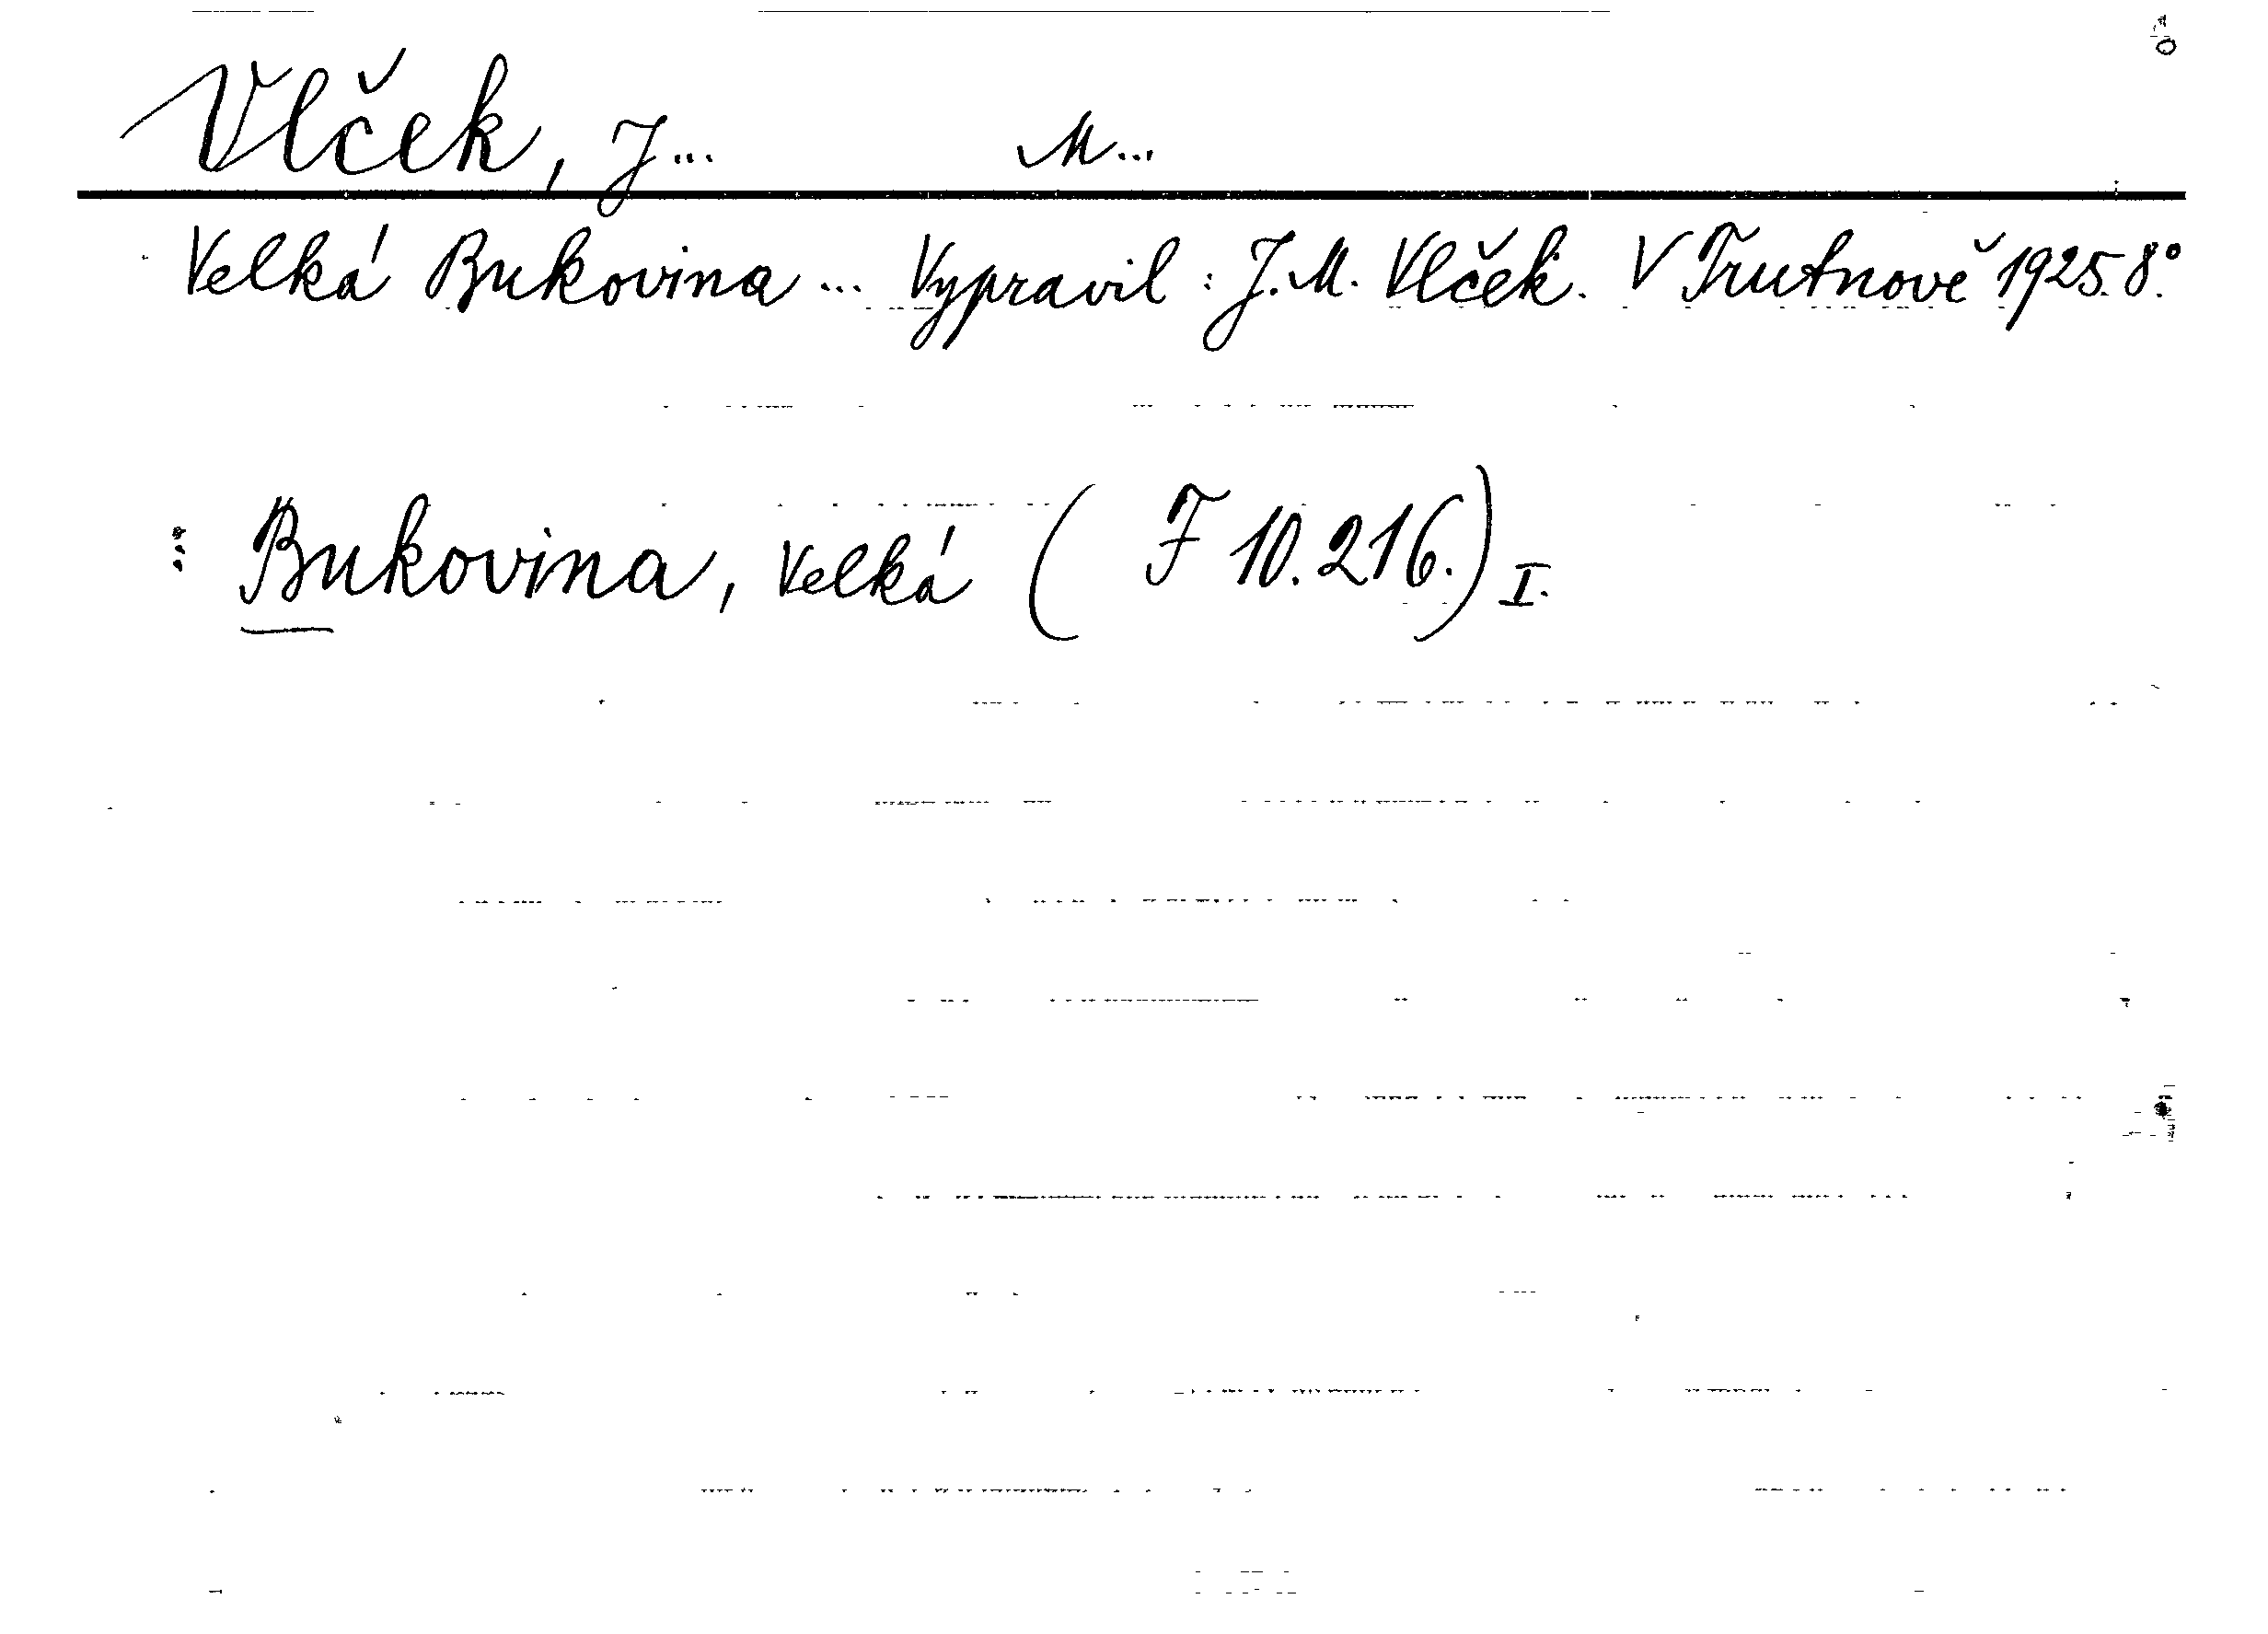 Vlček, J... M...
Velká Bukovina... Vypravil: J. M. Vlček. V Trutnově 1925. 8°.
: Bukovina, Velká ( F 10.216.) I.